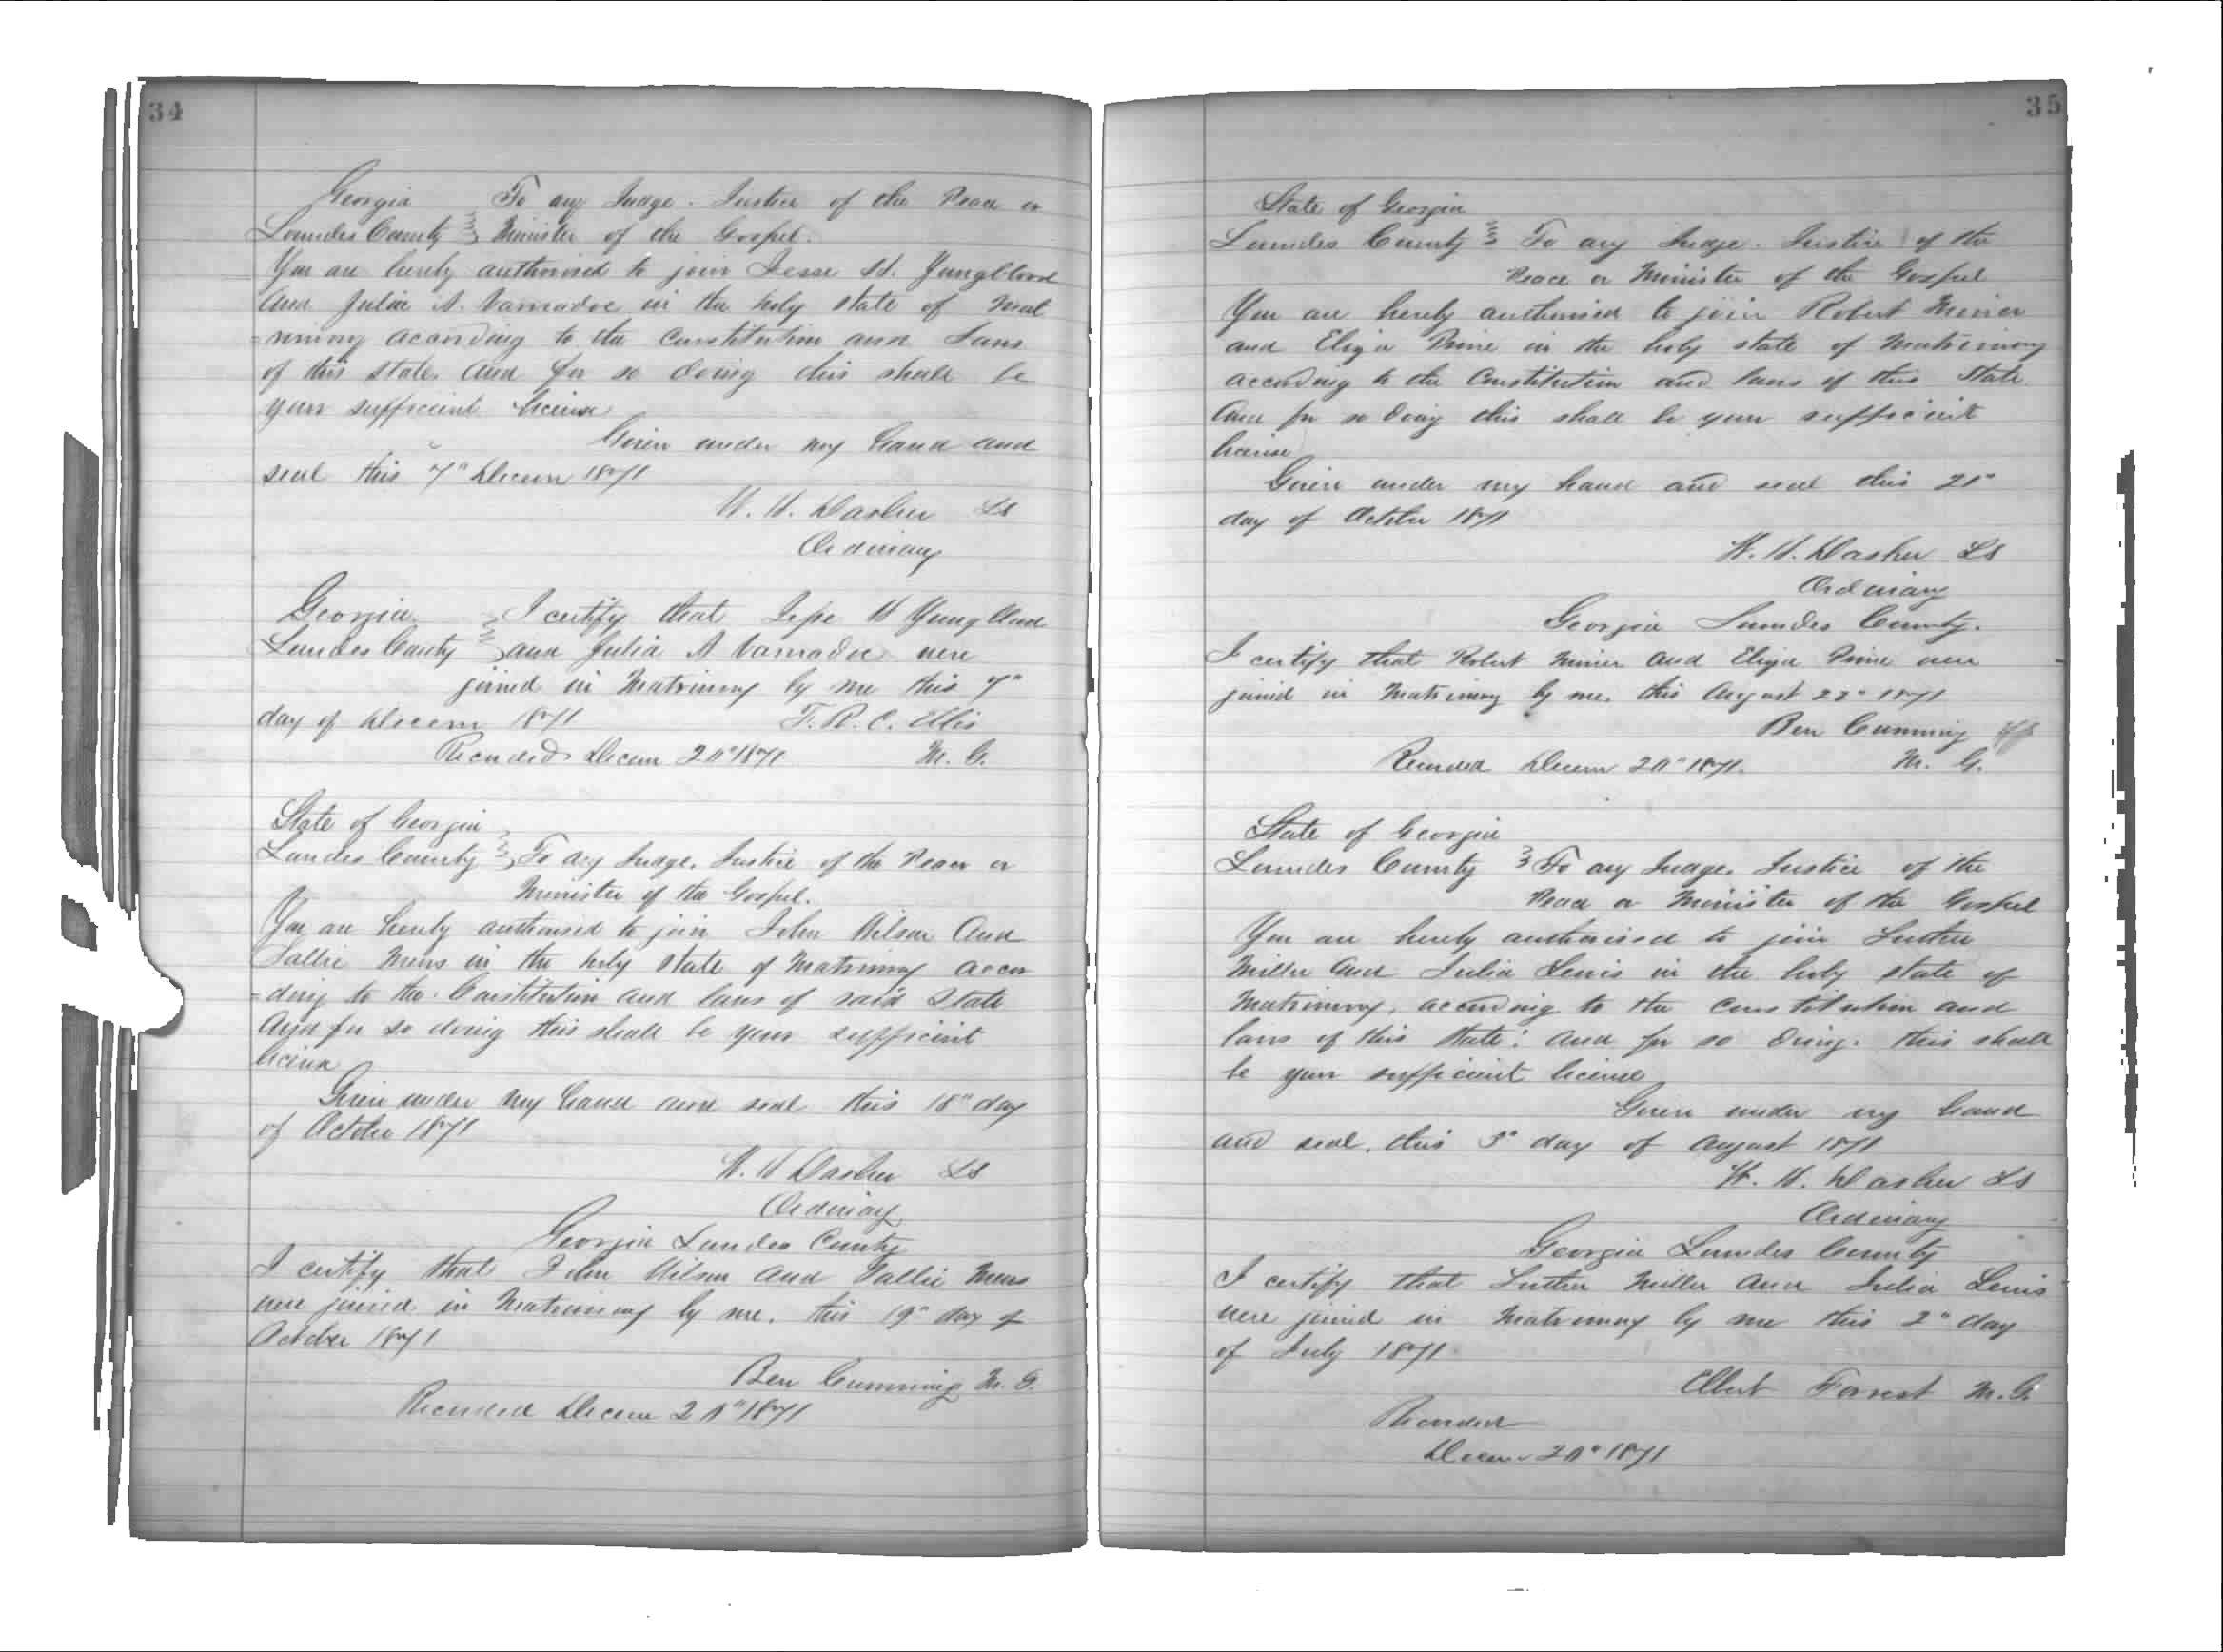 34
Georgia To any Judge. Justice of the Peace or
Lowndes County Minister of the Gospel.
You are hereby authorised to join Jesse H. Yungblood
and Julia A. Varnadoe in the holy state of Mat
=rimony according to the Constitution and Laws
of this State and for so doing this shall be
your sufficient license
Given under my hand and
seal this 7" Decem 1871
W. H. Dasher LS
Ordinary
Georgia I certify that Jesse H Yungblood
Lowndes County and Julia A Varnadoe were
joined in Matrimony by me this 7"
day of Decem 1871 T. R. C. Ellis
Recorded Decem 20" 1871 M. G.
State of Georgia
Lowndes County To any Judge. Justice of the Peace or
Minister of the Gospel.
You are hereby authorised to join John Wilson and
Sallie in the holy state of Matrimony accor
=ding to the Constitution and laws of said State
and for so doing this shall be your sufficient
license
Given under my hand and seal this 18" day
of October 1871
W. H Dasher LS
Ordinary
Georgia Lowndes County
I certify that John Wilson and Sallie
were joined in Matrimony by me. this 19" day of
October 1871
Ben Cumming M. G.
Recorded Decem 20" 1871
35
State of Georgia
Lowndes County To any Judge. Justice of the
Peace or Minister of the Gospel
You are hereby authorised to join Robert
and Eliza in the holy state of Matrimony
according to the Constitution and laws of this State
and for so doing this shall be your sufficient
license
Given under my hand and seal this 21"
day of October 1871
W. H. Dasher LS
Ordinary
Georgia Lowndes County.
I certify that Robert and Eliza were
joined in Matrimony by me. this August 22" 1871
Ben Cumming
Recorded Decem 20" 1871. M. G.
State of Georgia
Lowndes County To any Judge. Justice of the
Peace or Minister of the Gospel
You are hereby authorised to join Luther
Miller and Julia Lewis in the holy state of
Matrimony, according to the constitution and
laws of this State: and for so doing. this shall
be your sufficient license
Given under my hand
and seal. this 3" day of August 1871
W. H. Dasher LS
Ordinary
Georgia Lowndes County
I certify that Luther Miller and Julia Lewis
were joined in Matrimony by me this 2" day
of July 1871.
Elbert Forrest M. G.
Recorded
Decem 20" 1871